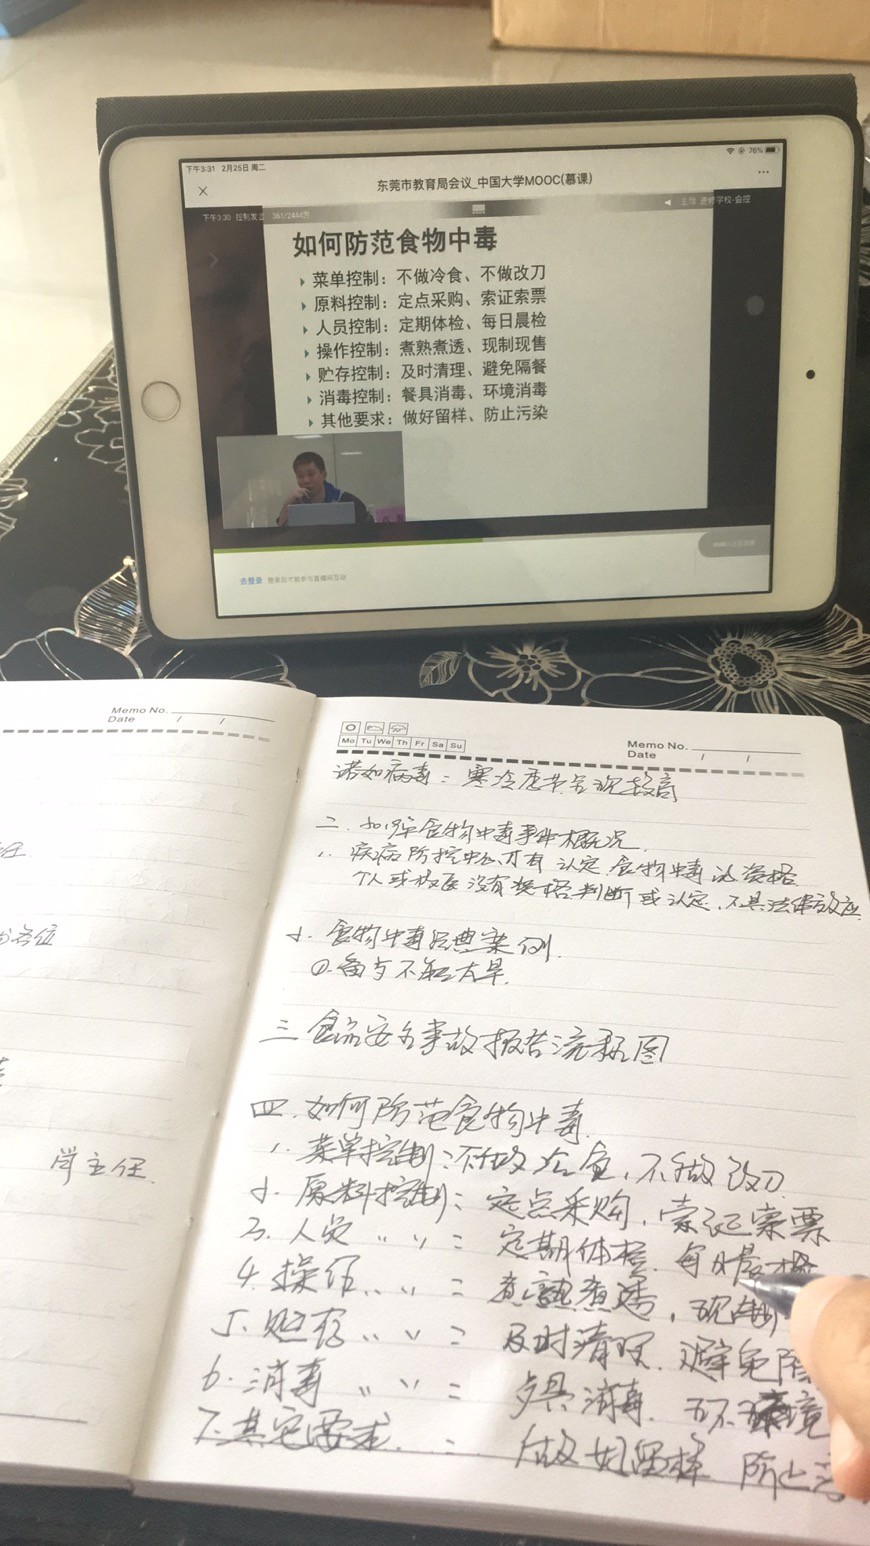 下午3:31 2月25日 周二
76%
东莞市教育局会议_中国大学MOOC(慕课)
主持 进修学校-会控
如何防范食物中毒
菜单控制：不做冷食、不做改刀
原料控制：定点采购、索证索票
人员控制：定期体检、每日晨检
操作控制：煮熟煮透、现制现售
贮存控制：及时清理、避免隔餐
消毒控制：餐具消毒、环境消毒
其他要求：做好留样、防止污染
去登录 登录后才能参与直播间互动
Memo No.
Date / /
Mo Tu We Th Fr Sa Su
Memo No.
Date / /
诺如病毒：寒冷季节出现较高
二. 食物中毒事件概况
1. 疾病防控中心才有认定食物中毒的资格
个人或校医没有资格判断或认定，不具法律效应
2. 食物中毒经典案例
①.
三 食品安全事故报告流程图
四. 如何防范食物中毒
1. 菜单控制：不做冷食，不做改刀
2. 原料控制：定点采购，索证索票
3. 人员 〃 〃：定期体检. 每日晨检
4. 操作 〃 〃：煮熟煮透，现制
5. 贮存 〃 〃：及时清理. 避免隔
6. 消毒 〃 〃：餐具消毒. 环境
7. 其它要求：做好留样 防止污
位
主任